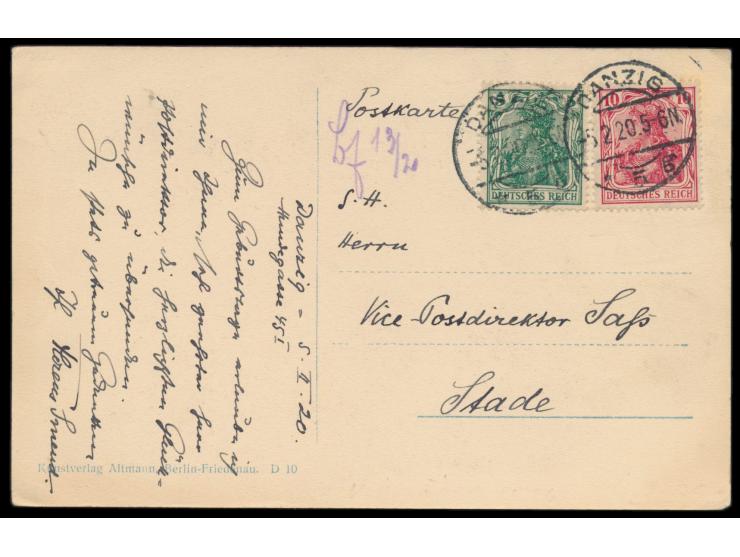 Danzig - 5. II. 20.
Hundegasse 45 I
Zum Geburtstage erlaube ich
mir Ihnen, sehr geehrter Herr
Postdirektor, die herzlichsten Glück-
wünsche zu übersenden.
In stets getreuem Gedenken
Postkarte
13/20
DANZIG
5.2.20.5-6N.
DEUTSCHES REICH
10 10
DEUTSCHES REICH
S.H.
Herrn
Vice-Postdirektor Saß
Stade
Kunstverlag Altmann, Berlin-Friedenau. D 10